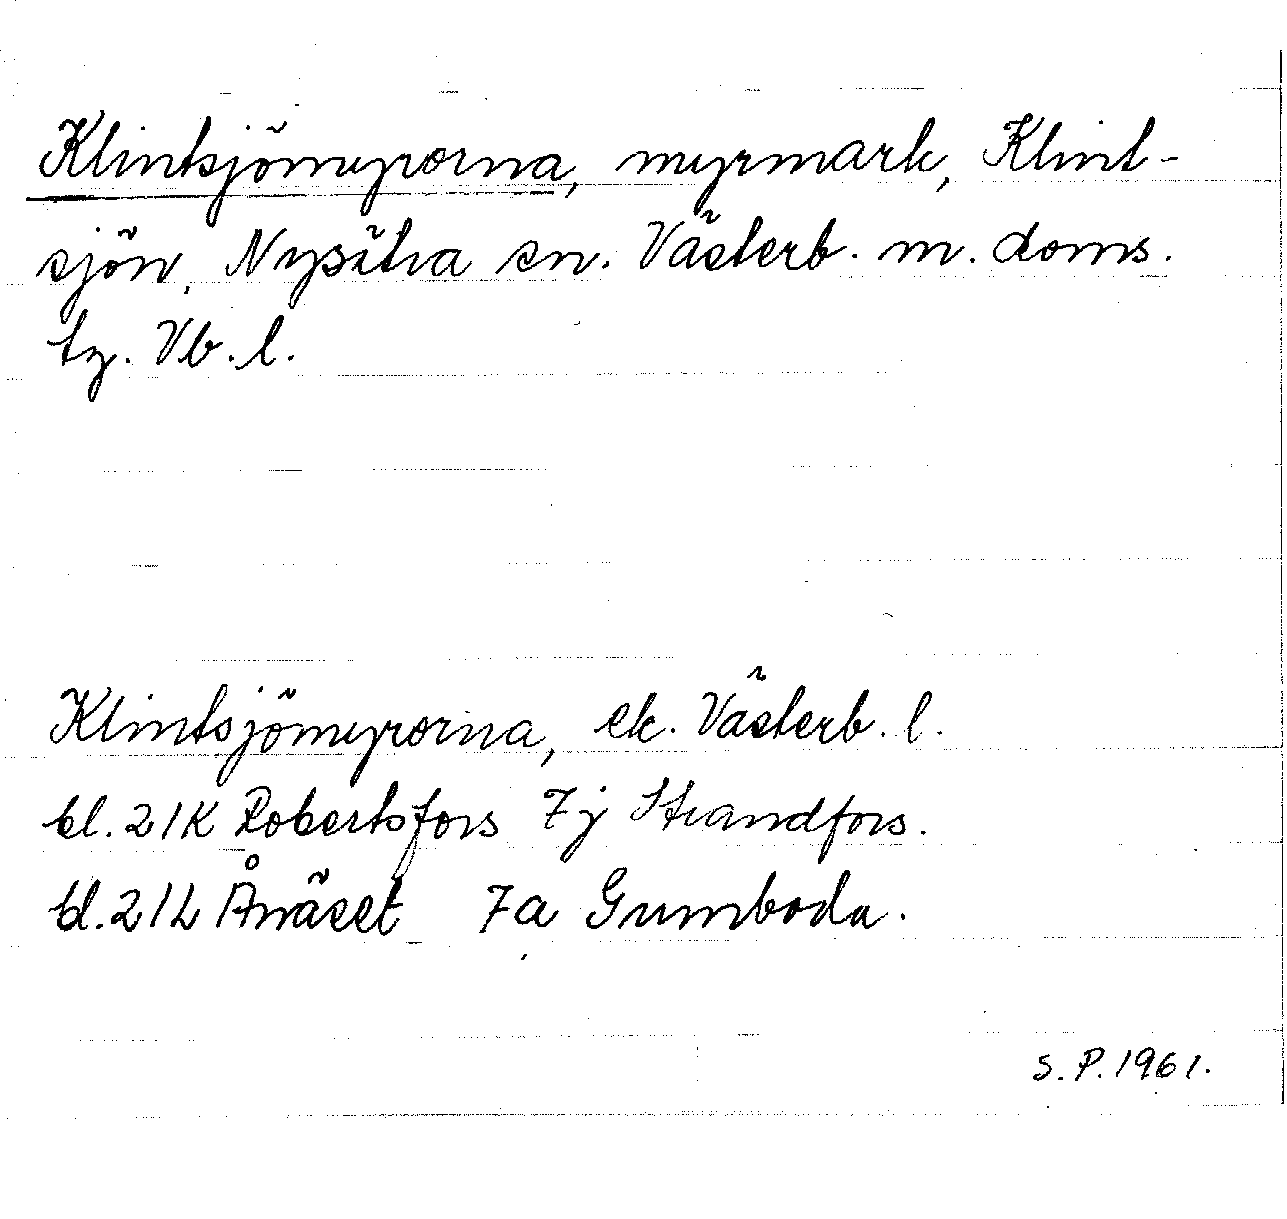 Klintsjömyrorna, myrmark, Klint-
sjön, Nysätra sn. Västerb. m. doms.
tg. Vb. l.
Klintsjömyrorna, ek. Västerb. l.
bl. 21K Robertsfors 7j Strandfors.
bl. 21L Ånäset 7a Gumboda.
S. P. 1961.